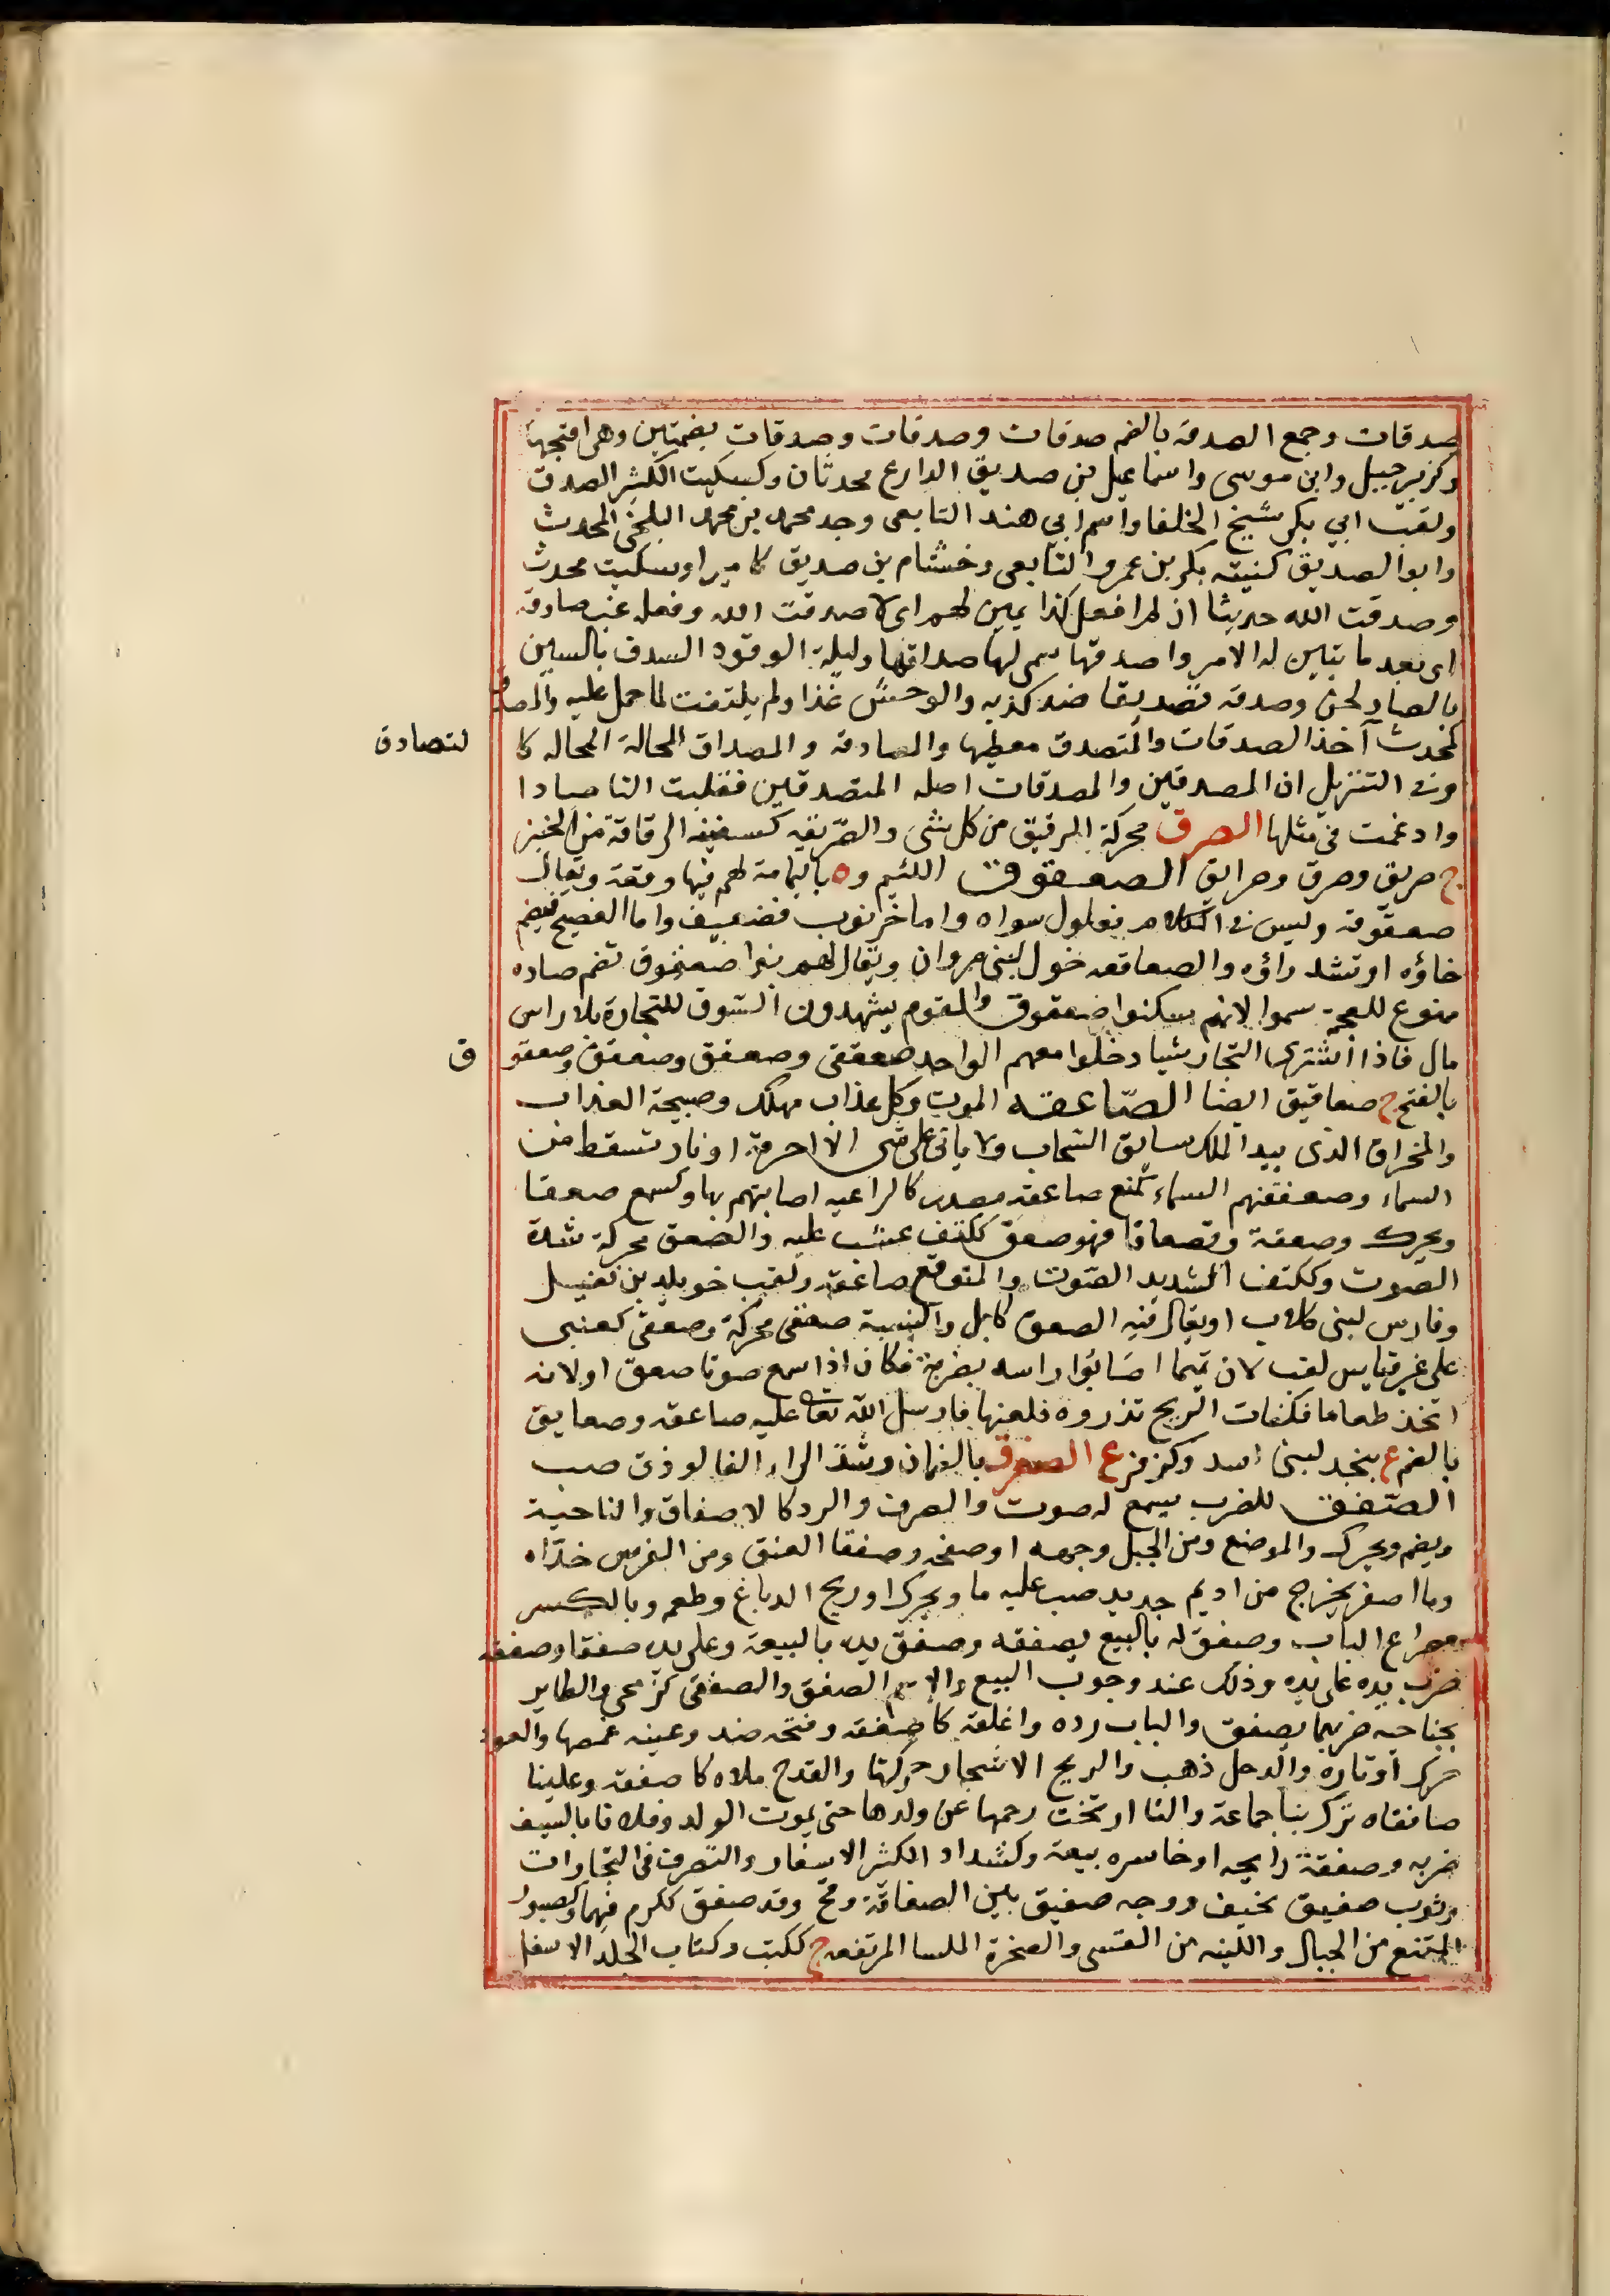 صدقات وجمع الصدقة بالضم صدقات وصدقات وصدقات بضمتين وهى افتجها
وكزبير جبيل وابن موسى واسماعيل بن صديق الدارع محدثان وكسكيت الكثير الصدق
ولقب ابي بكر شيخ الخلفا واسم ابي هند التابعى وجد محمد بن محمد البلخى المحدث
وابو الصديق كنيته بكر بن عمرو التابعى وخشنام بن صديق كامير او سكيت محدث
وصدقت الله حديثا ان لم افعل كذا يمين لهم اى لا صدقت الله وفعله غب صادقة
اى بعد ما تبين له الامر واصدقها سمى لها صداقها وليلة الوقود السدق بالسين
بالصاد لحن وصدقه تصديقا ضد كذبه والوحشى غدا ولم يلتفت لما حمل عليه والمصدق
كمحدث آخذ الصدقات والمتصدق معطيها والمصادقة والصداق المخالة المخاله كا
لتصادق
وفى التنزيل ان المصدقين والمصدقات اصله المتصدقين فقلبت التا صادا
وادغمت فى مثلها الصرق محركة الرقيق من كل شى والصريقه كسفينه الرقاقة من الخبز
ج صريق وصرق وصرايق الصعقوق اللئيم وه باليمامة لهم فيها وقعة ويقال
صعقوقه وليس فى الكلام فعلول سواه واما خرنوب فضعيف واما الفصيح فيضم
خاؤه او تشد راؤه والصعاقعه خول لبنى مروان ويقال لهم بنوا صعفوق تضم صاده
ممنوع للعجمة سموا لانهم سكنوا صعقوق والقوم يشهدون السوق للتجارة بلا راس
مال فاذا اشترى التجار شيا دخلوا معهم الواحد صعفقى وصعفق وصعفق وصعفو
ق
بالفتح ج صعافيق ايضا الصاعقه الموت وكل عذاب مهلك وصيحة العذاب
والمخراق الذى بيد الملك سايق السحاب ولا ياتى على شى الا احرقه او نار تسقط من
السماء وصعقتهم السماء كمنع صاعقة مصدر كالراعيه اصابتهم بها وكسمع صعقا
ويحرك وصعقة وتصعاقا فهو صعق ككتف غشى عليه والصعق محركة شدة
الصوت وككتف الشديد الصوت والمتوقع صاعقة ولقب خويلد بن نفيل
وفارس لبنى كلاب او يقال فيه الصعق كابل والنسبة صعقى محركة وصعقى كعنبى
على غير قياس لقب لان تميما اصابوا راسه بضربة فكان اذا سمع صوتا صعق او لانه
اتخذ طعاما فكفات الريح قدوره فلعنها فارسل الله تعالى عليه صاعقة وصعايق
بالضم ع بنجد لبنى اسد وكزفر ع الصفرق بالضمان وشد الراء الفالوذق صب
الصفق للضرب يسمع له صوت والصرف والرد كالاصفاق والناحية
ويضم ويحرك والموضع ومن الجبل وجهه او صفحه وصفقا العنق ومن الفرس خداه
وما اصفر يخرج من اديم جديد صب عليه ما ويحرك او ريح الدباغ وطعمه وبالكسر
مصراع الباب وصفق له بالبيع يصفقه وصفق يده بالبيعة وعلى يده صفقا وصفقه
ضرب بيده على يده وذلك عند وجوب البيع والاسم الصفق والصفقى كزمجى والطاير
بجناحيه ضربهما يصفق والباب رده واغلقه كاصفقه وفتحه ضد وعينه غمضها والعود
حرك اوتاره والرجل ذهب والريح الاشجار حركتها والقدح ملاه كاصفقه وعلينا
صافقاه ترك بنا جماعة والنا ارتخت رحمها عن ولدها حتى يموت الولد وفلانا بالسيف
ضربه وصفقة رابحه او خاسره بيعة وكشداد الكثير الاسفار والتصرف فى التجارات
وثوب صفيق نخيف ووجه صفيق بين الصفاقة ومح وقد صفق ككرم فيهما وكصبور
الممتنع من الجبال واللينه من القسى والصخرة الملسا المرتفعه ج ككتب وكتاب الجلد الاسفل